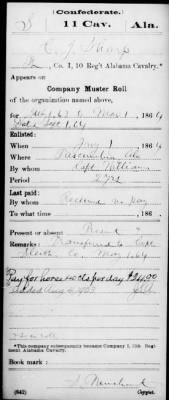 (Confederate.)
S 11 Cav. Ala.
C. J. Sharp
Co. I, 10 Reg't Alabama Cavalry.*
Appears on
Company Muster Roll
of the organization named above,
for 63 to Mar 1, 1864
Sept 1, 64
Enlisted:
When 1, 186
Where Tuscumbia Ala
By whom Capt Williams
Period 2 yrs
Last paid:
By whom Received no pay
To what time , 186 .
Present or absent Present
Remarks: Transferred to Capt
Co. May 1, 64
Pay for horse 40 cts per day $24.00
*This company subsequently became Company I, 11th Regiment Alabama Cavalry.
Book mark:
(642) Copyist.